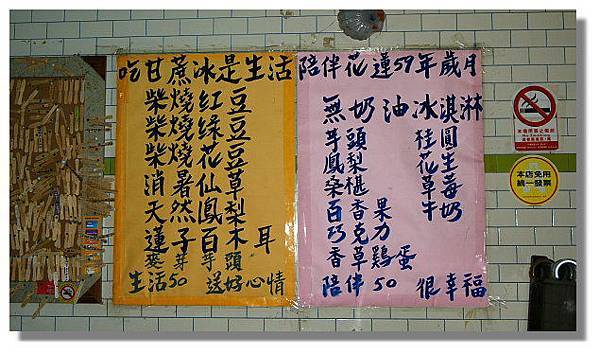 吃甘蔗冰是生活
柴燒紅豆
柴燒綠豆
柴燒花豆
消暑仙草
天然鳳梨
蓮子百木耳
麥芽芋頭
生活50 送好心情
陪伴花蓮59年歲月
無奶油冰淇淋
芋頭 桂圓
鳳梨 花生
桑椹 草莓
百香果 牛奶
巧克力
香草鷄蛋
陪伴50 很幸福
本店免用
統一發票